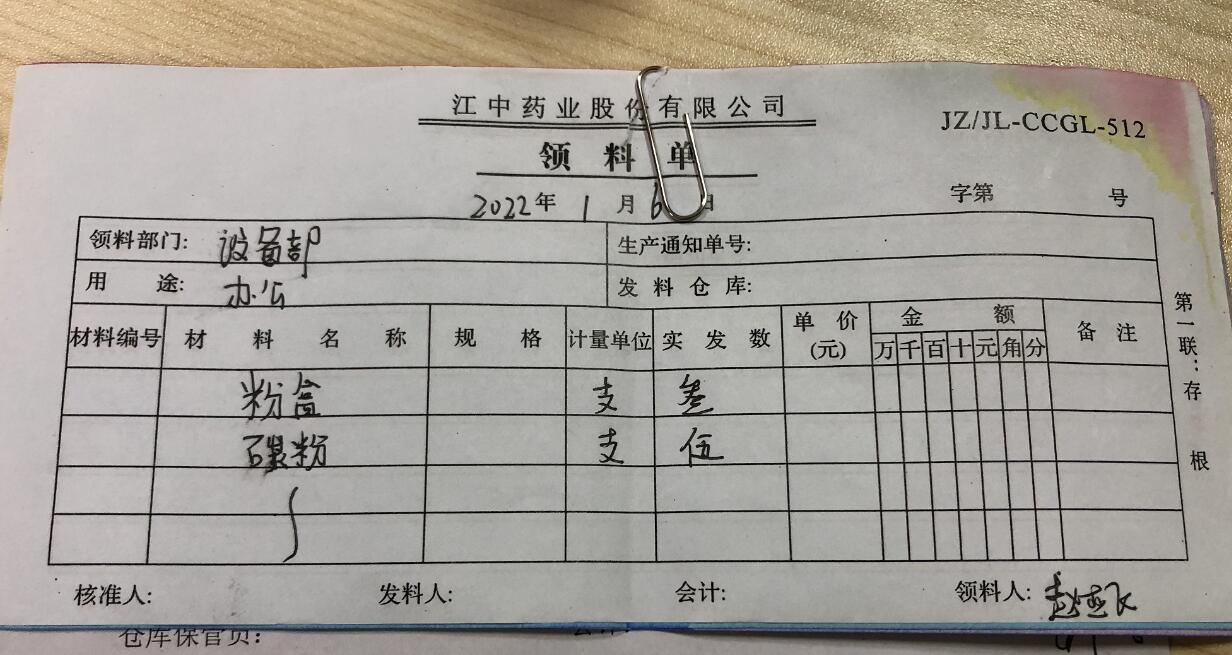 江中药业股份有限公司
JZ/JL-CCGL-512
领料单
2022年1月6日
字第 号
领料部门: 设备部
生产通知单号:
用途: 办公
发料仓库:
材料编号 材料名称 规格 计量单位 实发数 单价(元) 金额 备注
万 千 百 十 元 角 分
粉盒 支 叁
碳粉 支 伍
第一联:存根
核准人: 发料人: 会计: 领料人:
仓库保管员: